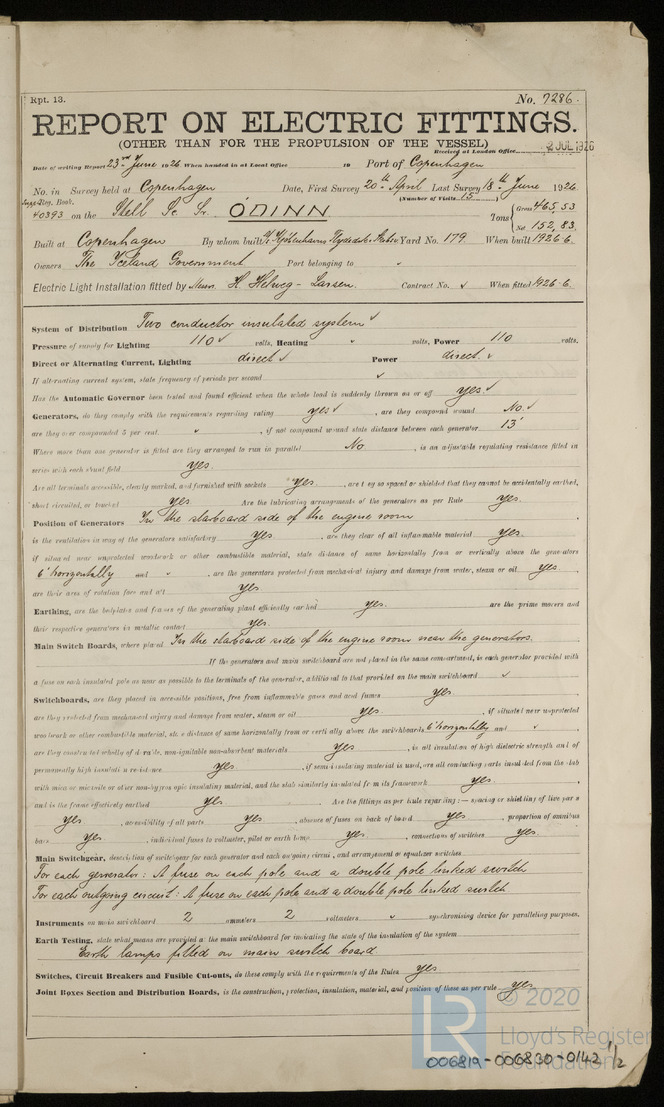 Rpt. 13. No. 7286.
REPORT ON ELECTRIC FITTINGS.
(OTHER THAN FOR THE PROPULSION OF THE VESSEL)
Received at London Office 2 JUL 1926
Date of writing Report 23rd June 1926 When handed in at Local Office 19 Port of Copenhagen
No. in Survey held at Copenhagen Date, First Survey 20th April Last Survey 18th June 1926
Reg. Book. (Number of Visits 15)
40393 on the Steel Sc. Sr. ÓDINN Tons { Gross 465,53
Net 152,83
Built at Copenhagen By whom built Yard No. 179. When built 1926-6.
Owners The Iceland Government Port belonging to "
Electric Light Installation fitted by Messrs. H. Helweg-Larsen. Contract No. ✓ When fitted 1926-6.
System of Distribution Two conductor insulated system ✓
Pressure of supply for Lighting 110 ✓ volts, Heating " volts, Power 110 volts.
Direct or Alternating Current, Lighting direct ✓ Power direct. ✓
If alternating current system, state frequency of periods per second ✓
Has the Automatic Governor been tested and found efficient when the whole load is suddenly thrown on or off yes. ✓
Generators, do they comply with the requirements regarding rating yes ✓, are they compound wound No. ✓
are they over compounded 5 per cent. ", if not compound wound state distance between each generator 13'
Where more than one generator is fitted are they arranged to run in parallel No., is an adjustable regulating resistance fitted in
series with each shunt field yes.
Are all terminals accessible, clearly marked, and furnished with sockets yes., are they so spaced or shielded that they cannot be accidentally earthed,
short circuited, or touched yes. Are the lubricating arrangements of the generators as per Rule yes.
Position of Generators In the starboard side of the engine room
is the ventilation in way of the generators satisfactory yes, are they clear of all inflammable material yes.
if situated near unprotected woodwork or other combustible material, state distance of same horizontally from or vertically above the generators
6' horizontally and ", are the generators protected from mechanical injury and damage from water, steam or oil yes.
are their axes of rotation fore and aft yes.
Earthing, are the bedplates and frames of the generating plant efficiently earthed yes. are the prime movers and
their respective generators in metallic contact yes.
Main Switch Boards, where placed In the starboard side of the engine room near the generators.
If the generators and main switchboard are not placed in the same compartment, is each generator provided with
a fuse on each insulated pole as near as possible to the terminals of the generator, additional to that provided on the main switchboard ✓
Switchboards, are they placed in accessible positions, free from inflammable gases and acid fumes yes.
are they protected from mechanical injury and damage from water, steam or oil yes., if situated near unprotected
woodwork or other combustible material, state distance of same horizontally from or vertically above the switchboards 6' horizontally and ✓
are they constructed wholly of durable, non-ignitable non-absorbent materials yes, is all insulation of high dielectric strength and of
permanently high insulation resistance yes., if semi-insulating material is used, are all conducting parts insulated from the slab
with mica or micanite or other non-hygroscopic insulating material, and the slab similarly insulated from its framework yes.
and is the frame effectively earthed yes. Are the fittings as per Rule regarding:— spacing or shielding of live parts
yes., accessibility of all parts yes., absence of fuses on back of board yes., proportion of omnibus
bars yes., individual fuses to voltmeter, pilot or earth lamp yes., connections of switches yes.
Main Switchgear, description of switchgear for each generator and each outgoing circuit, and arrangement of equalizer switches
For each generator: A fuse on each pole and a double pole linked switch
For each outgoing circuit: A fuse on each pole and a double pole linked switch
Instruments on main switchboard 2 ammeters 2 voltmeters ✓ synchronising device for paralleling purposes.
Earth Testing, state what means are provided at the main switchboard for indicating the state of the insulation of the system
Earth lamps fitted on main switch board
Switches, Circuit Breakers and Fusible Cut-outs, do these comply with the requirements of the Rules yes
Joint Boxes Section and Distribution Boards, is the construction, protection, insulation, material, and position of these as per rule yes.
LR © 2020
Lloyd's Register
Foundation
006819-006830-0142 1/2